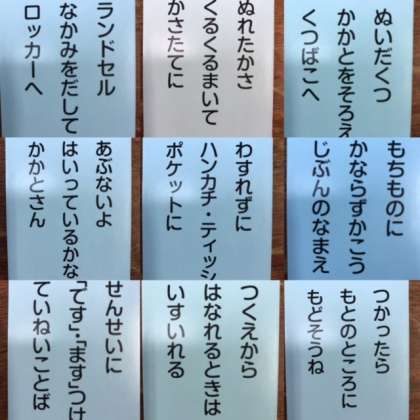 ランドセル
なかみをだして
ロッカーへ
ぬれたかさ
くるくるまいて
かさたてに
ぬいだくつ
かかとをそろえ
くつばこへ
あぶないよ
はいっているかな
かかとさん
わすれずに
ハンカチ・ティッシ
ポケットに
もちものに
かならずかこう
じぶんのなまえ
せんせいに
「です」・「ます」つけ
ていねいことば
つくえから
はなれるときは
いすいれる
つかったら
もとのところに
もどそうね